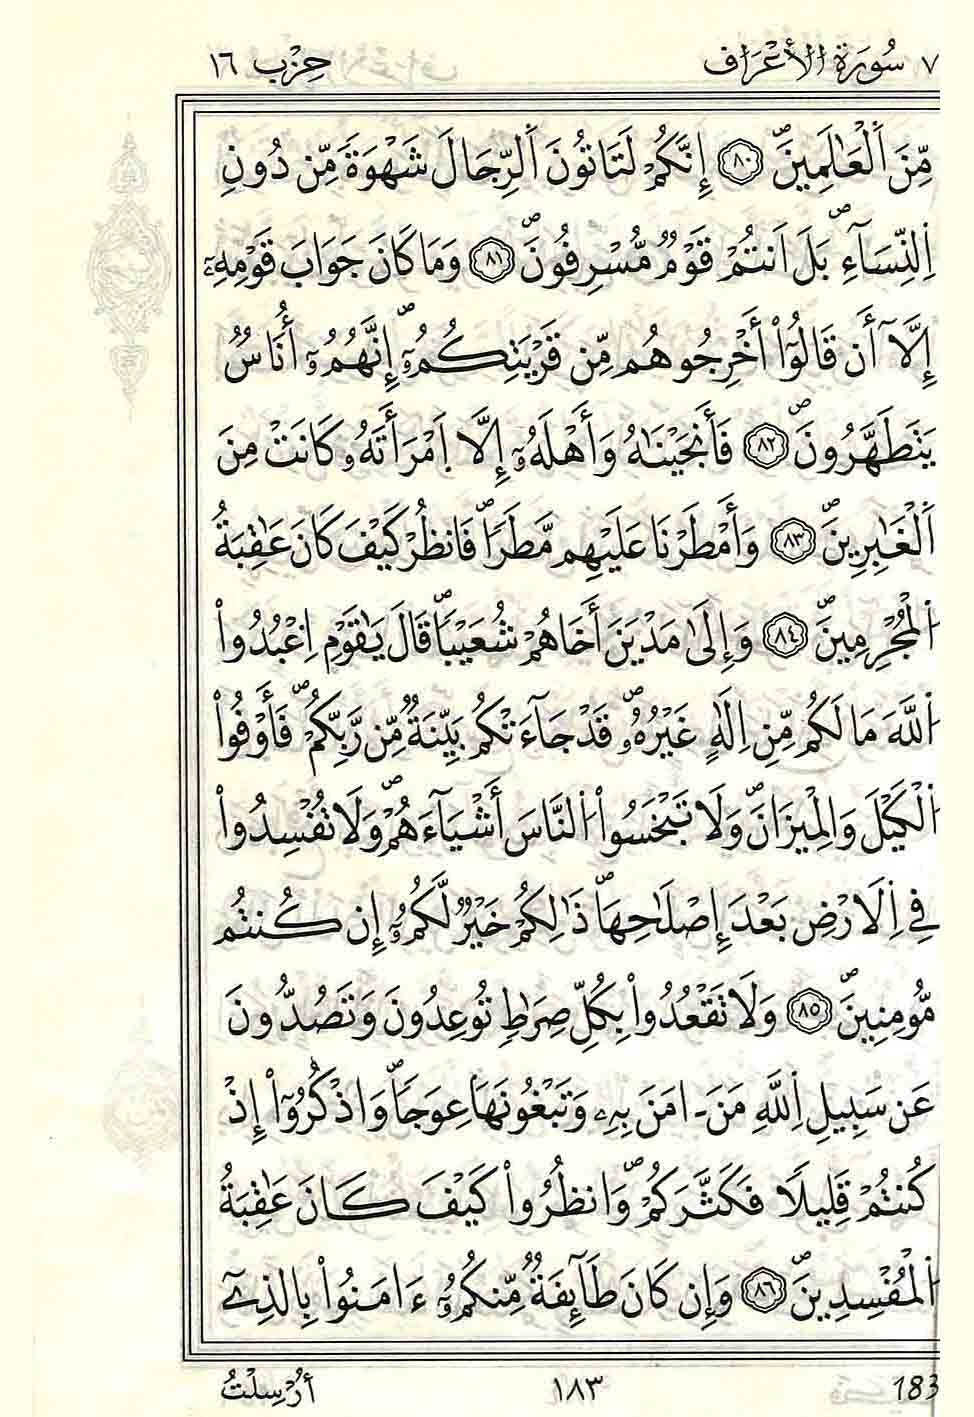 ٧ سُورَةُ الأَعْرَافِ حِزْب ١٦
مِّنَ اَ۬لْعَٰلَمِينَۖ ٨٠ إِنَّكُمْ لَتَاتُونَ اَ۬لرِّجَالَ شَهْوَةٗ مِّن دُونِ
اِ۬لنِّسَآءِۖ بَلَ اَنتُمْ قَوْمٞ مُّسْرِفُونَۖ ٨١ وَمَا كَانَ جَوَابَ قَوْمِهِۦٓ
إِلَّآ أَن قَالُوٓاْ أَخْرِجُوهُم مِّن قَرْيَتِكُمُۥٓۖ إِنَّهُمُۥٓ أُنَاسٞ
يَتَطَهَّرُونَۖ ٨٢ فَأَنجَيْنَٰهُ وَأَهْلَهُۥٓ إِلَّا اَ۪مْرَأَتَهُۥ كَانَتْ مِنَ
اَ۬لْغَٰبِرِينَۖ ٨٣ وَأَمْطَرْنَا عَلَيْهِم مَّطَراٗۖ فَانظُرْ كَيْفَ كَانَ عَٰقِبَةُ
اُ۬لْمُجْرِمِينَۖ ٨٤ وَإِلَىٰ مَدْيَنَ أَخَاهُمْ شُعَيْباٗۖ قَالَ يَٰقَوْمِ اِ۟عْبُدُواْ
اُ۬للَّهَ مَا لَكُم مِّنِ اِلَٰهٍ غَيْرُهُۥۖ قَدْ جَآءَتْكُم بَيِّنَةٞ مِّن رَّبِّكُمْۖ فَأَوْفُواْ
اُ۬لْكَيْلَ وَالْمِيزَانَۖ وَلَا تَبْخَسُواْ اُ۬لنَّاسَ أَشْيَآءَهُمْۖ وَلَا تُفْسِدُواْ
فِے اِ۬لَارْضِ بَعْدَ إِصْلَٰحِهَاۖ ذَٰلِكُمْ خَيْرٞ لَّكُمُۥٓ إِن كُنتُم
مُّومِنِينَۖ ٨٥ وَلَا تَقْعُدُواْ بِكُلِّ صِرَٰطٖ تُوعِدُونَ وَتَصُدُّونَ
عَن سَبِيلِ اِ۬للَّهِ مَنَ ـ امَنَ بِهِۦ وَتَبْغُونَهَا عِوَجاٗۖ وَاذْكُرُوٓاْ إِذْ
كُنتُمْ قَلِيلاٗ فَكَثَّرَكُمْۖ وَانظُرُواْ كَيْفَ كَانَ عَٰقِبَةُ
اُ۬لْمُفْسِدِينَۖ ٨٦ وَإِن كَانَ طَآئِفَةٞ مِّنكُمُۥٓ ءَامَنُواْ بِالذِےٓ
أُرْسِلْتُ ١٨٣ 183